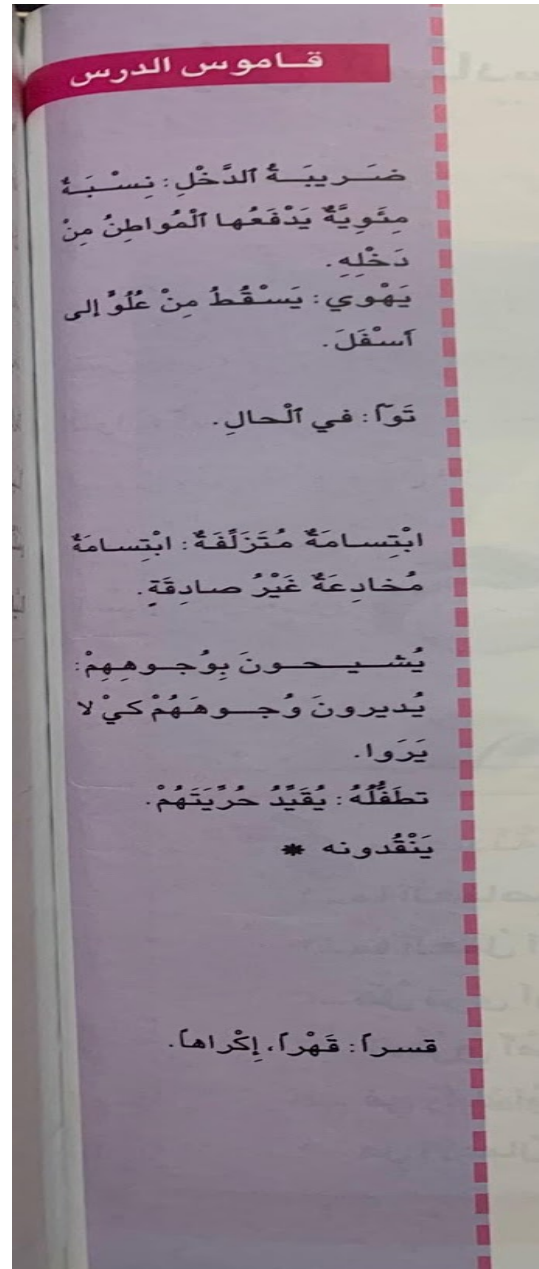 قاموس الدرس
ضَريبَةُ ٱلدَّخْلِ: نِسْبَةٌ
مِئَوِيَّةٌ يَدْفَعُها ٱلْمُواطِنُ مِنْ
دَخْلِهِ.
يَهْوي: يَسْقُطُ مِنْ عُلُوٍّ إلى
أسْفَلَ.
تَوّاً: في ٱلْحالِ.
ابْتِسامَةٌ مُتَزَلِّفَةٌ: ابْتِسامَةٌ
مُخادِعَةٌ غَيْرُ صادِقَةٍ.
يُشيحونَ بِوُجوهِهِمْ:
يُديرونَ وُجوهَهُمْ كيْ لا
يَرَوا.
تطَفُّلُهُ: يُقَيِّدُ حُرِّيَتَهُمْ.
يَنْقُدونه *
قسراً: قَهْراً، إكْراهاً.